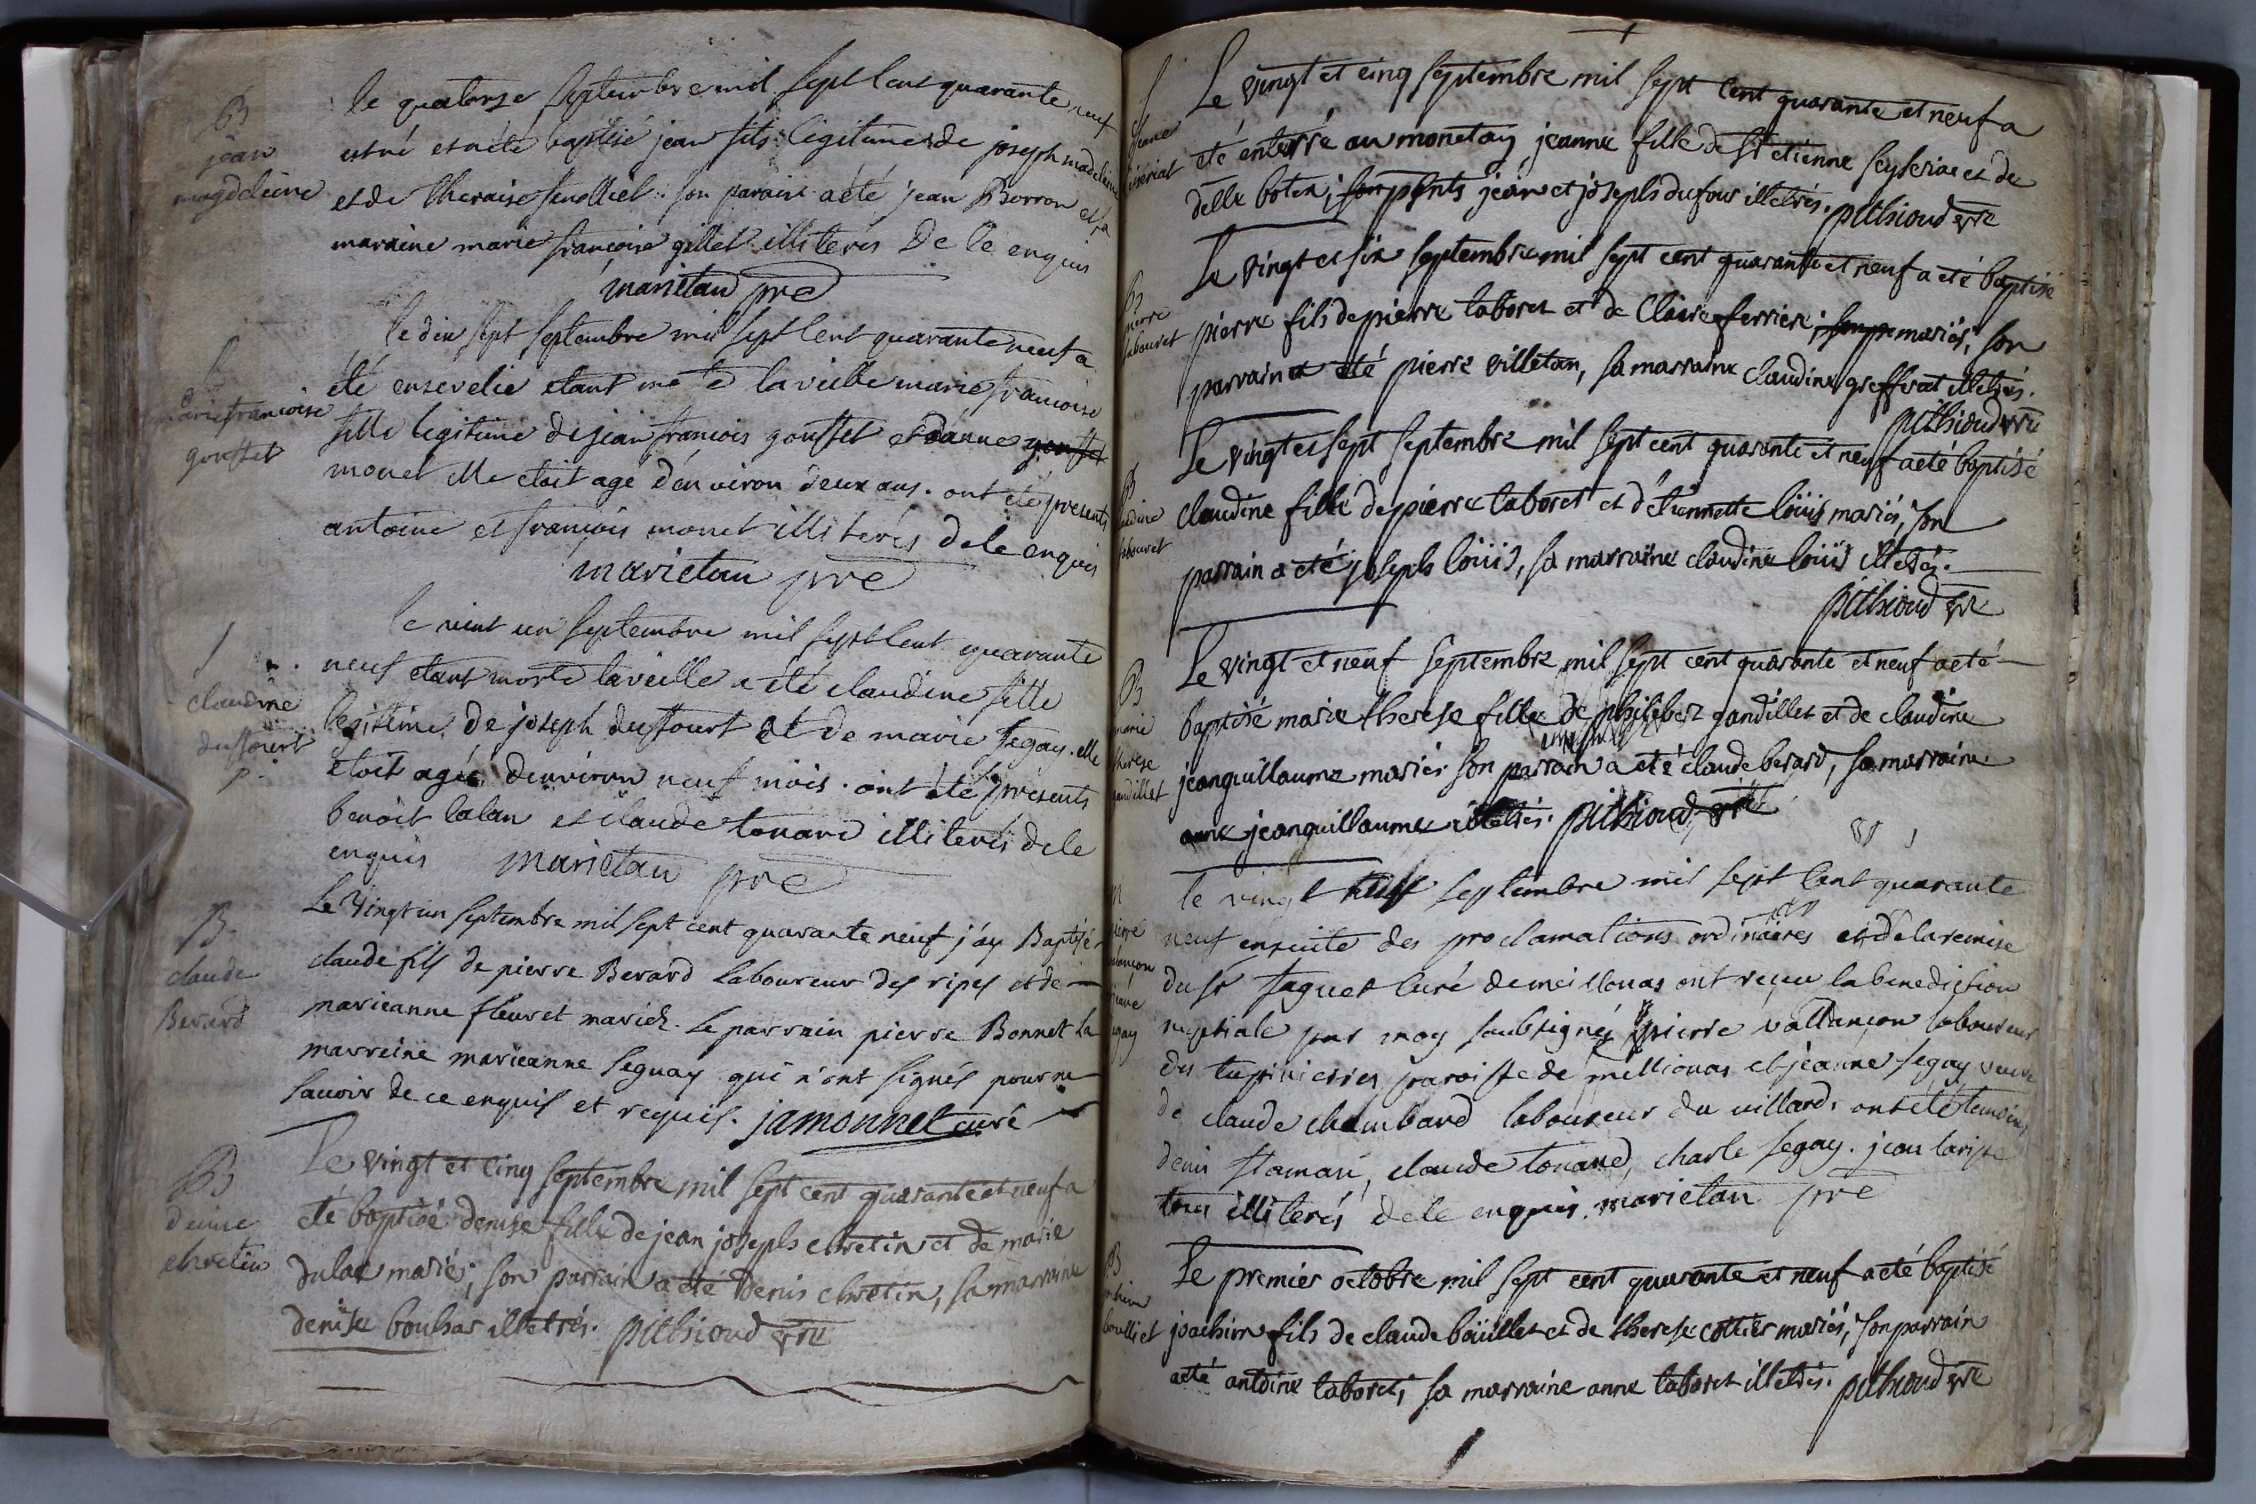 B
jean
magdeleine
le quatorze septembre mil sept cent quarante neuf
est né et a été baptisé jean fils legitime de joseph madeleine
et de theraise son parain a été jean Borron et sa
maraine marie francoise gillet illiterés de ce enquis
marietau pre
marie francoise
gouffet
le dix sept septembre mil sept cent quarante neuf a
été ensevelie etant morte la veille marie francoise
fille legitime de jean francois gouffet et d'anne gouffet
monet elle etoit agé d'environ deux ans. ont été présents
antoine et francois monet illiterés de ce enquis
marietau pre
claudine
duffourt
p.
le vint un septembre mil sept cent quarante
neuf etant morte la veille a été claudine fille
legitime de joseph duffourt et de marie segay. elle
etoit agée d'environ neuf mois. ont été présents
benoit lalan et claude tonard illiterés de ce
enquis marietau pre
B
claude
Berard
Le Vingt un septembre mil sept cent quarante neuf j'ay Baptisé
claude fils de pierre Berard laboureur des ripes et de
marieanne fleuret mariez. Le parrain pierre Bonnet La
marreine marieanne Seguay qui n'ont signés pour ne
savoir de ce enquis et requis. jamonnet curé
B
denise
chretin
Le vingt et cinq septembre mil sept cent quarante et neuf a
eté baptisé denise fille de jean joseph chretin et de marie
dulac mariés; son parrain a été Denis chretin, sa marraine
denise bouhas illetrés. pithioud vre
jeanne
Le vingt et cinq septembre mil sept cent quarante et neuf a
eté enterré au monetay jeanne fille de St etienne seyseriat et de
delle botex; presents jean et joseph dufour illetrés. pithioud vre
B
pierre
tabouret
Le vingt et six septembre mil sept cent quarante et neuf a eté baptisé
pierre fils de pierre taboret et de Claire ferrier; mariés; son
parrain a eté pierre villetan, sa marraine claudine greffirat illetrés.
pithioud vre
B
claudine
tabouret
Le vingt et sept septembre mil sept cent quarante et neuf a eté baptisé
claudine fille de pierre taboret et d'etiennette loüis mariés, son
parrain a eté joseph loüis, sa marraine claudine loüis illetrés.
pithioud vre
B
marie
therese
gandillet
Le vingt et neuf septembre mil sept cent quarante et neuf a eté
baptisé marie therese fille de philebert gandillet et de claudine
jeanguillaume mariés son parrain a eté claude berard, sa marraine
anne jeanguillaume illetrés. pithioud vre
M
pierre
jeane
segay
le vingt neuf septembre mil sept cent quarante
neuf ensuite des proclamations ordinaires et de la remise
du sr taguet curé de meillonas ont reçeu la benediction
nuptiale par moy soubsigné pierre vallancon laboureur
des tupinieries paroisse de meillonas et jeanne segay veuve
de claude chambard laboureur du villard. ont été temoins
denis claude tonard, charle segay. jean
tous illiterés de ce enquis. marietau pre
B
boulliet
Le premier octobre mil sept cent quarante et neuf a eté baptisé
joachim fils de claude boüillet et de therese cottier mariés, son parrain
a eté antoine taboret; sa marraine anne taboret illetrés. pithioud vre